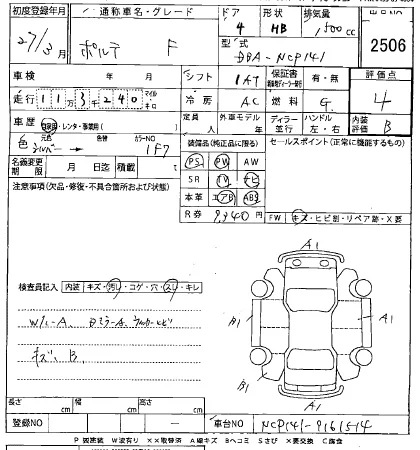 初度登録年月 通称車名・グレード ドア 形状 排気量
27/3月 ポルテ F 4 HB 1500cc
型式 DBA-NCP141 2506
車検 年 月 シフト IAT 保証書 有・無 評価点
走行 11万3千240 マイル キロ 冷房 AC 燃料 G. 4
車歴 自家用・レンタ・事業用( ) 定員 人 外車モデル 年 ディーラー 並行 ハンドル 左・右 内装評価 B
色 元色 シルバー → 色替 カラーNO 1F7
装備品(純正品に限る) セールスポイント(正常に機能するもの)
名義変更期限 月 日迄 積載 t
PS PW AW
注意事項(欠品・修復・不具合箇所および状態)
SR TV ナビ
本革 エアB ABS
R券 9,940円
FW キズ・ヒビ割・リペア跡・X要
A1
検査員記入 内装 キズ・汚れ・コゲ・穴・スレ・キレ
B1 A1
W/C-A
キズ、B
B1
A1
長さ cm 幅 cm 高さ cm
登録NO 車台NO NCP141-9161514
P 要塗装 W波有り XX取替済 A線キズ Bヘコミ Sさび X要交換 C腐食